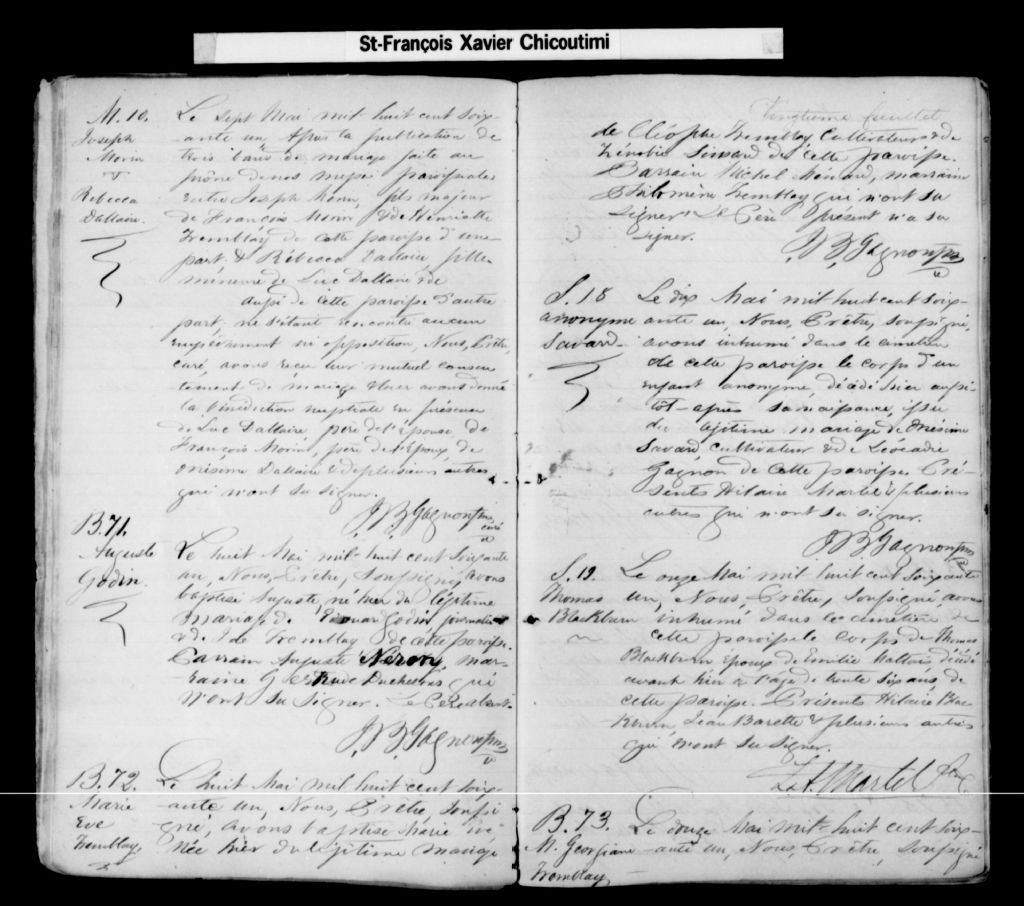 St-François Xavier Chicoutimi
M. 10.
Joseph
Morin
&
Rébecca
Dallaire.
Le sept Mai mil huit cent soix-
ante un après la publication de
trois bans de mariage faite au
prône de nos messes paroissiales
entre Joseph Morin, fils majeur
de François Morin & de Henriette
Tremblay de cette paroisse d'une
part & Rébecca Dallaire fille
mineure de Luc Dallaire & de
aussi de cette paroisse d'autre
part, ne s'étant rencontré aucun
empêchement ni opposition, Nous, Prêtre,
curé, avons reçu leur mutuel consen
tement de mariage & leur avons donné
la bénédiction nuptiale en présence
de Luc Dallaire père de l'épouse de
François Morin, père de l'époux, de
Onésime Dallaire & de plusieurs autres
qui n'ont su signer.
J. B. Gagnon ptre
curé
B. 71.
Auguste
Godin.
Le huit Mai mil huit cent soixante
un, Nous, Prêtre, soussigné, avons
baptisé Auguste, né hier du légitime
mariage de Godin journalier
& d' Tremblay de cette paroisse.
Parrain Auguste Néron, mar-
raine Duchesne qui
n'ont su signer. Le Père absent.
J. B. Gagnon ptre
B. 72.
Marie
Eve
Tremblay
Le huit Mai mil huit cent soix-
ante un, Nous, Prêtre, soussi
gné, avons baptisé Marie Eve
née hier du légitime mariage
Vingtième feuillet
de Cléophe Tremblay Cultivateur & de
Zénobie Simard de cette paroisse.
Parrain Michel Ménard, marraine
Philomène Tremblay qui n'ont su
signer. Le Père présent n'a su
signer.
J. B. Gagnon ptre
S. 18
anonyme
Savard.
Le dix Mai mil huit cent soix-
ante un, Nous, Prêtre, soussigné,
avons inhumé dans le cimetière
de cette paroisse le corps d'un
enfant anonyme, décédé hier aussi-
tôt après sa naissance, issu
du légitime mariage de Onésime
Savard cultivateur & de Léocadie
Gagnon de cette paroisse. Pré-
sents Hilaire Martel & plusieurs
autres qui n'ont su signer.
J B Gagnon ptre
S. 19.
Thomas
Blackburn
Le onze Mai mil huit cent soixante
un, Nous, Prêtre, soussigné, avons
inhumé dans le cimetière de
cette paroisse le corps de Thomas
Blackburn époux de Emilie Maltais décédé
avant hier à l'age de trente six ans de
cette paroisse. Présents Hilaire Blac
kburn, Jean Barette & plusieurs autres
qui n'ont su signer.
Martel Ptre
B. 73.
M. Georgiane
Tremblay
Le douze Mai mil huit cent soix-
ante un, Nous, Prêtre, soussigné